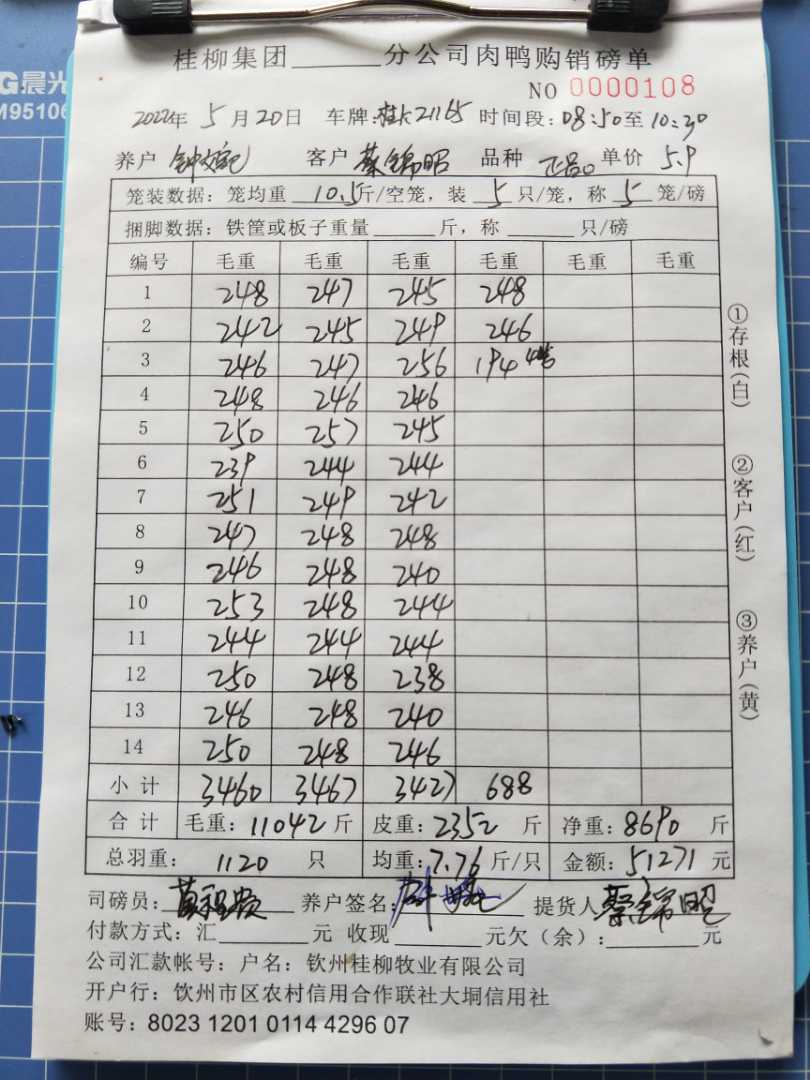 晨光
M95106
桂柳集团______分公司肉鸭购销磅单
NO 0000108
2022年 5 月 20 日 车牌:桂K21165 时间段:08:50至10:30
养户 客户 蔡锦昭 品种 正品 单价 5.9
笼装数据：笼均重 10.5 斤/空笼，装 5 只/笼，称 5 笼/磅
捆脚数据：铁筐或板子重量______斤，称______只/磅
编号 毛重 毛重 毛重 毛重 毛重 毛重
1 248 247 245 248
2 242 245 249 246
3 246 247 256 194 4笼
4 248 246 246
5 250 257 245
6 239 244 244
7 251 249 242
8 247 248 248
9 246 248 240
10 253 248 244
11 244 244 244
12 250 248 238
13 246 248 240
14 250 248 246
小计 3460 3467 3427 688
合计 毛重：11042 斤 皮重：2352 斤 净重：8690 斤
总羽重： 1120 只 均重：7.76 斤/只 金额：51271 元
司磅员： 养户签名： 提货人 蔡锦昭
付款方式：汇______元 收现______元欠（余）：______元
公司汇款帐号：户名：钦州桂柳牧业有限公司
开户行：饮州市区农村信用合作联社大垌信用社
账号：8023 1201 0114 4296 07
①存根(白)
②客户(红)
③养户(黄)